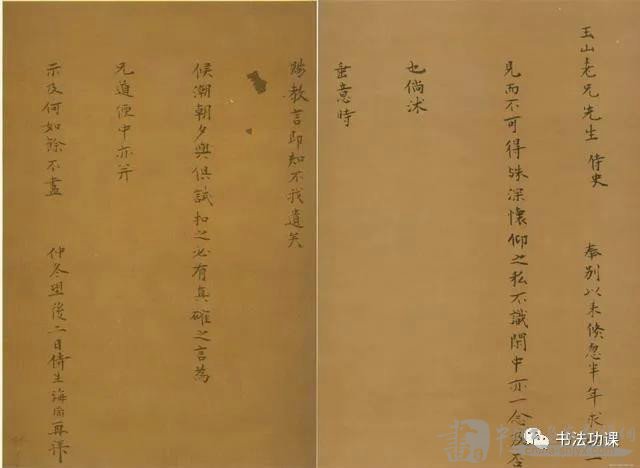 玉山老兄先生 侍史 奉別以来倏忽半年求一
見而不可得殊深懷仰之私不識閑中亦一念及否
也倘沐
垂意時
賜教言即知不我遺矣
候潮朝夕與俱試扣之必有真確之言為
兄道便中亦并
示及何如餘不盡 仲冬望後二日侍生海再拜
书法功课